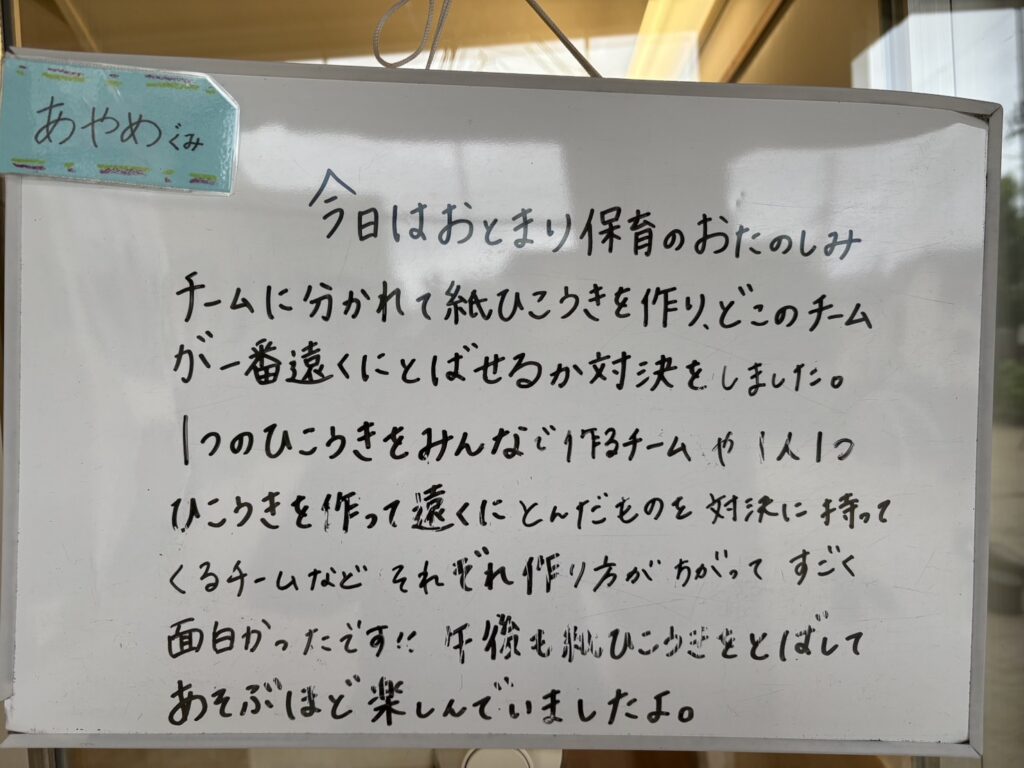 あやめぐみ
今日はおとまり保育のおたのしみ
チームに分かれて紙ひこうきを作り、どこのチーム
が一番遠くにとばせるか対決をしました。
1つのひこうきをみんなで作るチームや1人1つ
ひこうきを作って遠くにとんだものを対決に持って
くるチームなどそれぞれ作り方がちがってすごく
面白かったです!! 午後も紙ひこうきをとばして
あそぶほど楽しんでいましたよ。